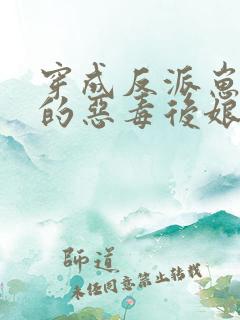 穿成反派崽
的惡毒後娘
師道
未經同意禁止轉載